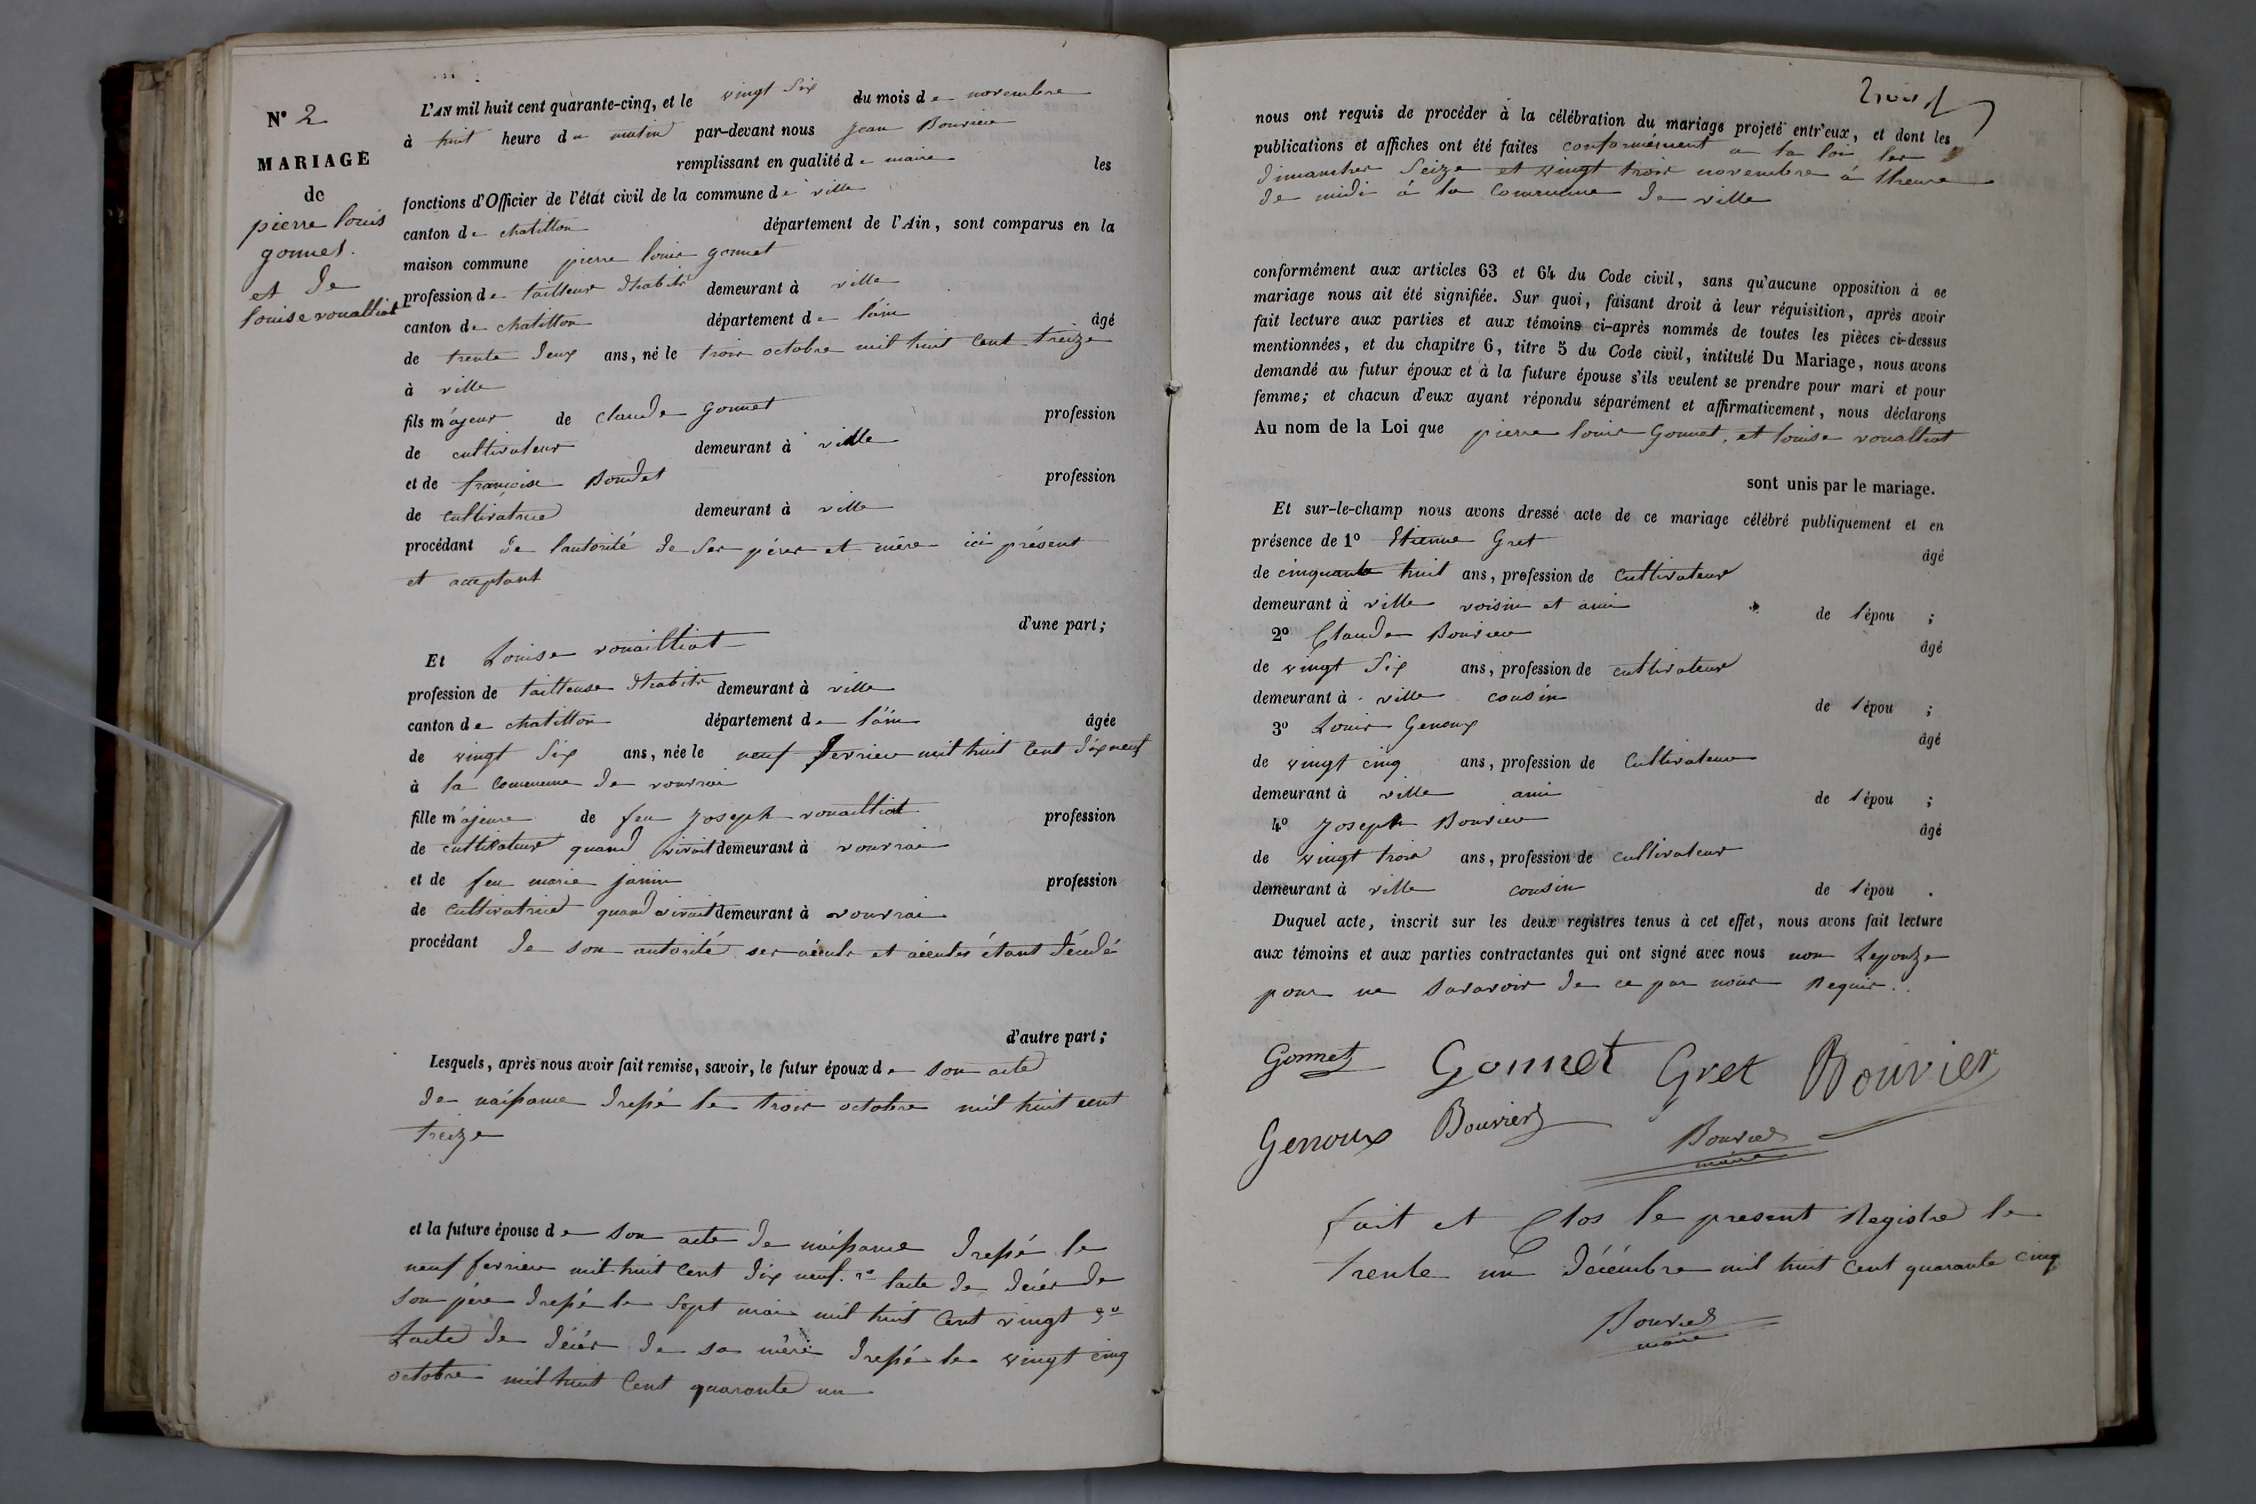 N° 2
MARIAGE
de
pierre louis
gonnet.
et de
louise rouailliat
L'AN mil huit cent quarante-cinq, et le vingt six du mois de novembre
à huit heure du matin par-devant nous jean Bouvier
remplissant en qualité de maire les
fonctions d'Officier de l'état civil de la commune de ville
canton de chatillon département de l'Ain, sont comparus en la
maison commune pierre louis gonnet
profession de tailleur d'habits demeurant à ville
canton de chatillon département de lain âgé
de trente deux ans, né le trois octobre mil huit cent treize
à ville
fils majeur de claude gonnet profession
de cultivateur demeurant à ville
et de françoise Boudet profession
de cultivatrice demeurant à ville
procédant de lautorité de ses pères et mère ici présent
et acceptant
d'une part;
Et Louise rouailliat
profession de tailleuse d'habits demeurant à ville
canton de chatillon département de l'ain âgée
de vingt six ans, née le neuf fevrier mil huit cent dix neuf
à la commune de vouvrai
fille majeure de feu joseph rouailliat profession
de cultivateur quand vivait demeurant à vouvrai
et de feu marie janin profession
de cultivatrice quand vivait demeurant à vouvrai
procédant de son autorité ses aéeuls et aéeules étant décédé
d'autre part;
Lesquels, après nous avoir fait remise, savoir, le futur époux de son acte
de naissance dressé le trois octobre mil huit cent
treize
et la future épouse de son acte de naissance dressé le
neuf fevrier mil huit cent dix neuf. 2° lacte de décès de
son père dressé le sept mai mil huit cent vingt 3°
Lacte de décès de sa mère dressé le vingt cinq
octobre mil huit cent quarante un
trois
nous ont requis de procéder à la célébration du mariage projeté entr'eux, et dont les
publications et affiches ont été faites conformément a la loi les
dimanches seize et vingt trois novembre à lheure
de midi à la commune de ville
conformément aux articles 63 et 64 du Code civil, sans qu'aucune opposition à ce
mariage nous ait été signifiée. Sur quoi, faisant droit à leur réquisition, après avoir
fait lecture aux parties et aux témoins ci-après nommés de toutes les pièces ci-dessus
mentionnées, et du chapitre 6, titre 5 du Code civil, intitulé Du Mariage, nous avons
demandé au futur époux et à la future épouse s'ils veulent se prendre pour mari et pour
femme; et chacun d'eux ayant répondu séparément et affirmativement, nous déclarons
Au nom de la Loi que pierre louis Gonnet, et louise rouailliat
sont unis par le mariage.
Et sur-le-champ nous avons dressé acte de ce mariage célébré publiquement et en
présence de 1° Etienne Gret âgé
de cinquante huit ans, profession de cultivateur
demeurant à ville voisin et ami de l'épou ;
2° Claude Bouvier âgé
de vingt six ans, profession de cultivateur
demeurant à ville cousin de l'épou ;
3° Louis Genoux âgé
de vingt cinq ans, profession de cultivateur
demeurant à ville ami de l'épou ;
4° joseph Bouvier âgé
de vingt trois ans, profession de cultivateur
demeurant à ville cousin de l'épou .
Duquel acte, inscrit sur les deux registres tenus à cet effet, nous avons fait lecture
aux témoins et aux parties contractantes qui ont signé avec nous non Lepouze
pour ne savavoir de ce par nous Requis.
Gonnet Gonnet Gret Bouvier
Genoux Bouvier Bouvier
maire
fait et Clos le present Registre le
trente un décémbre mil huit cent quarante cinq
Bouvier
maire